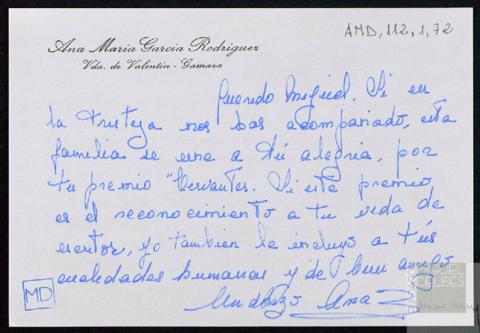 AMD, 112, 1, 72
Ana Maria Garcia Rodriguez
Vda. de Valentin - Gamazo
Querido Miguel. Si en
la tristeza nos has acompañado, esta
familia se une a tú alegria, por
tu premio "Cervantes. Si este premio
es el reconocimiento a tu vida de
escritor, yo tambien le incluyo a tús
cualidades humanas y de buen amigo
Un abrazo Ana
MD
MIGUEL
DELIBES